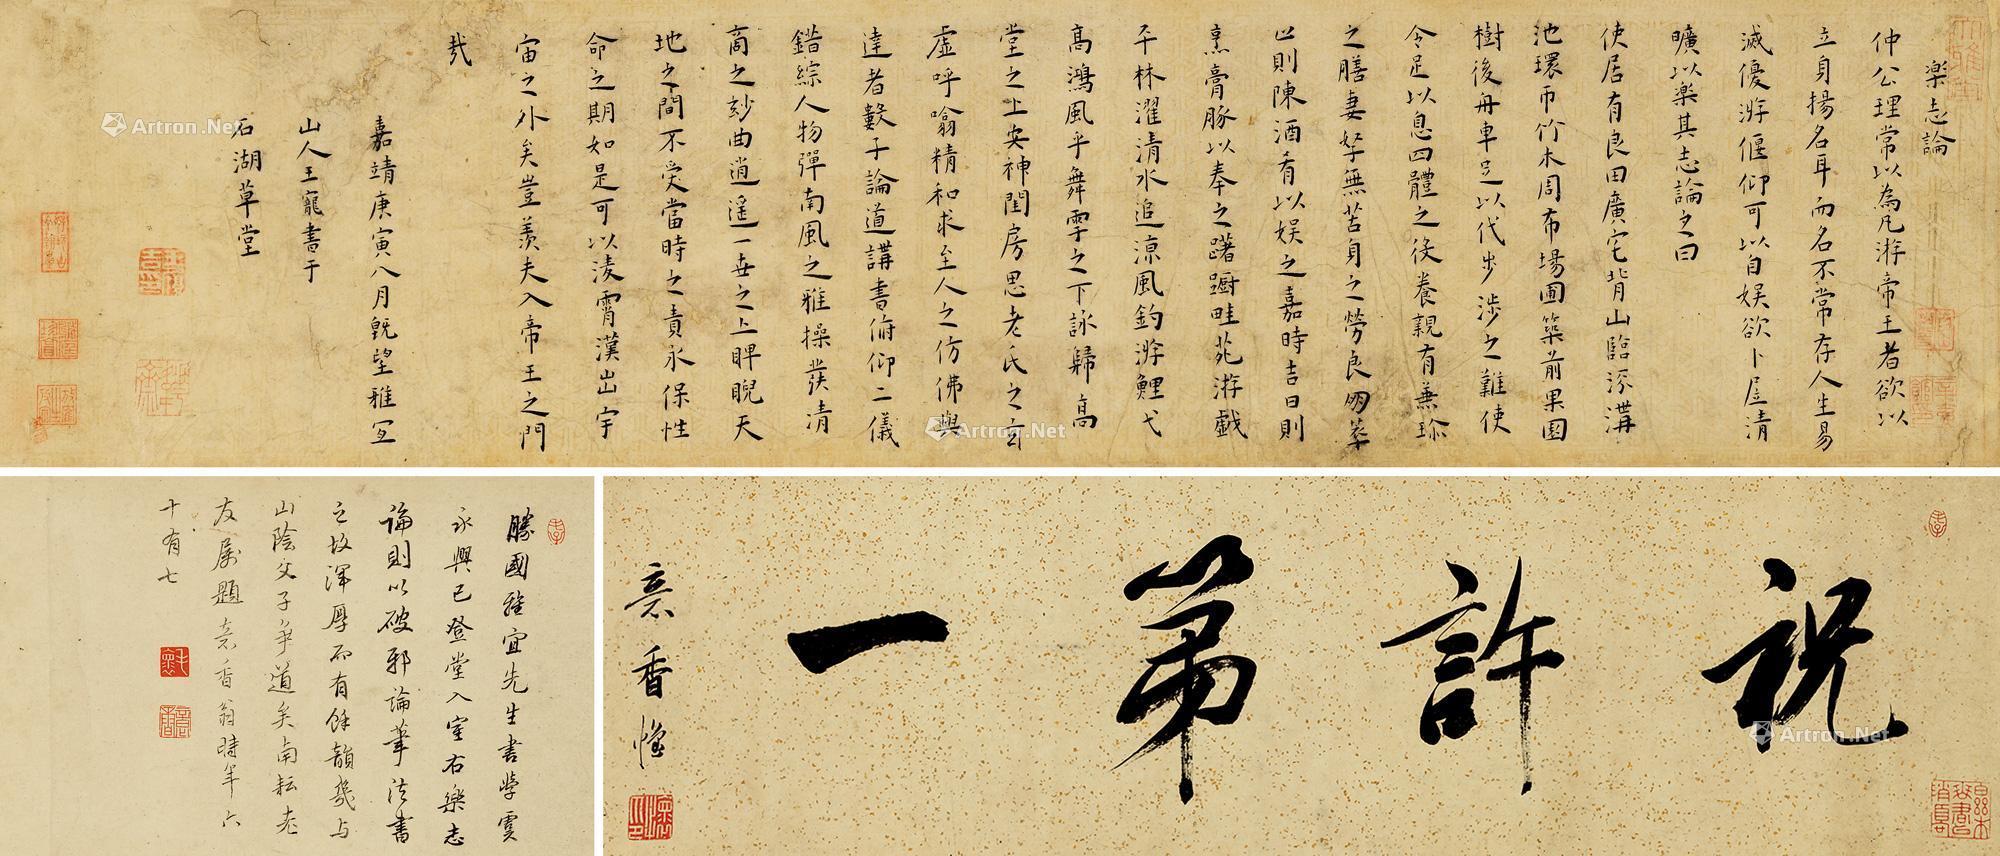 樂志論
仲公理常以為凡游帝王者欲以
立身揚名耳而名不常存人生易
滅優游偃仰可以自娛欲卜居清
曠以樂其志論之曰
使居有良田廣宅背山臨流溝
池環帀竹木周布場圃築前果園
樹後舟車足以代步涉之難使
令足以息四體之役養親有兼珍
之膳妻孥無苦身之勞良朋萃
止則陳酒肴以娛之嘉時吉日則
烹羔豚以奉之躊躇畦苑游戲
平林濯清水追涼風釣游鯉弋
高鴻風乎舞雩之下詠歸高
堂之上安神閨房思老氏之玄
虛呼噏精和求至人之仿佛與
達者數子論道講書俯仰二儀
錯綜人物彈南風之雅操發清
商之妙曲逍遙一世之上睥睨天
地之間不受當時之責永保性
命之期如是可以淩霄漢出宇
宙之外矣豈羨夫入帝王之門
哉
嘉靖庚寅八月既望雅宜
山人王寵書于
石湖草堂
祝許第一
意香惲
勝國雅宜先生書學虞
永興已登堂入室右樂志
論則以破邪論筆法書
之故渾厚而有餘韻幾与
山陰父子爭道矣南耘老
友屬題意香翁時年六
十有七
Artron.Net
Artron.Net
Artron.Net
Artron.Net